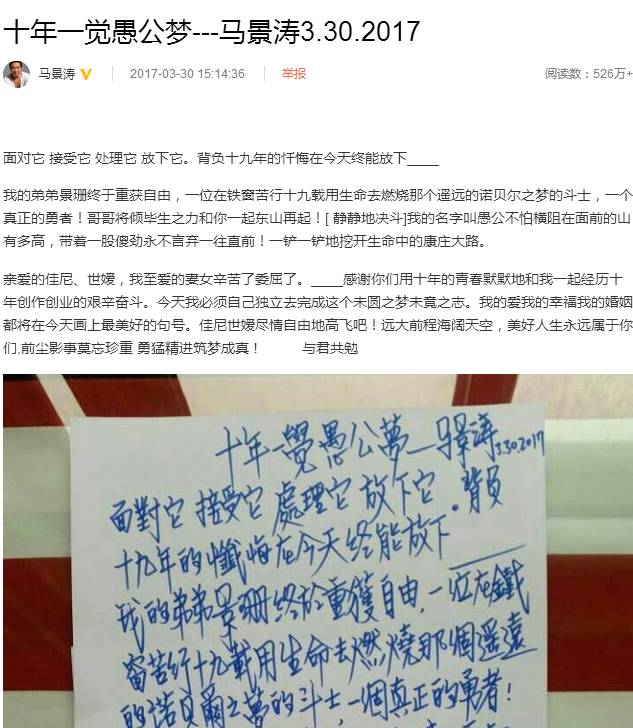 十年一觉愚公梦---马景涛3.30.2017
马景涛 2017-03-30 15:14:36 举报 阅读数：526万+
面对它 接受它 处理它 放下它。背负十九年的忏悔在今天终能放下____
我的弟弟景珊终于重获自由，一位在铁窗苦行十九载用生命去燃烧那个遥远的诺贝尔之梦的斗士，一个
真正的勇者！哥哥将倾毕生之力和你一起东山再起！[ 静静地决斗]我的名字叫愚公不怕横阻在面前的山
有多高，带着一股傻劲永不言弃一往直前！一铲一铲地挖开生命中的康庄大路。
亲爱的佳尼、世媛，我至爱的妻女辛苦了委屈了。____感谢你们用十年的青春默默地和我一起经历十
年创作创业的艰辛奋斗。今天我必须自己独立去完成这个未圆之梦未竟之志。我的爱我的幸福我的婚姻
都将在今天画上最美好的句号。佳尼世媛尽情自由地高飞吧！远大前程海阔天空，美好人生永远属于你
们,前尘影事莫忘珍重 勇猛精进筑梦成真！ 与君共勉
十年一覺愚公夢—馬景涛3.30.2017
面對它 接受它 處理它 放下它。背負
十九年的懺悔在今天終能放下____
我的弟弟景珊終於重獲自由，一位在鐵
窗苦行十九載用生命去燃燒那個遥遠
的諾貝爾之夢的斗士，一個真正的勇者！